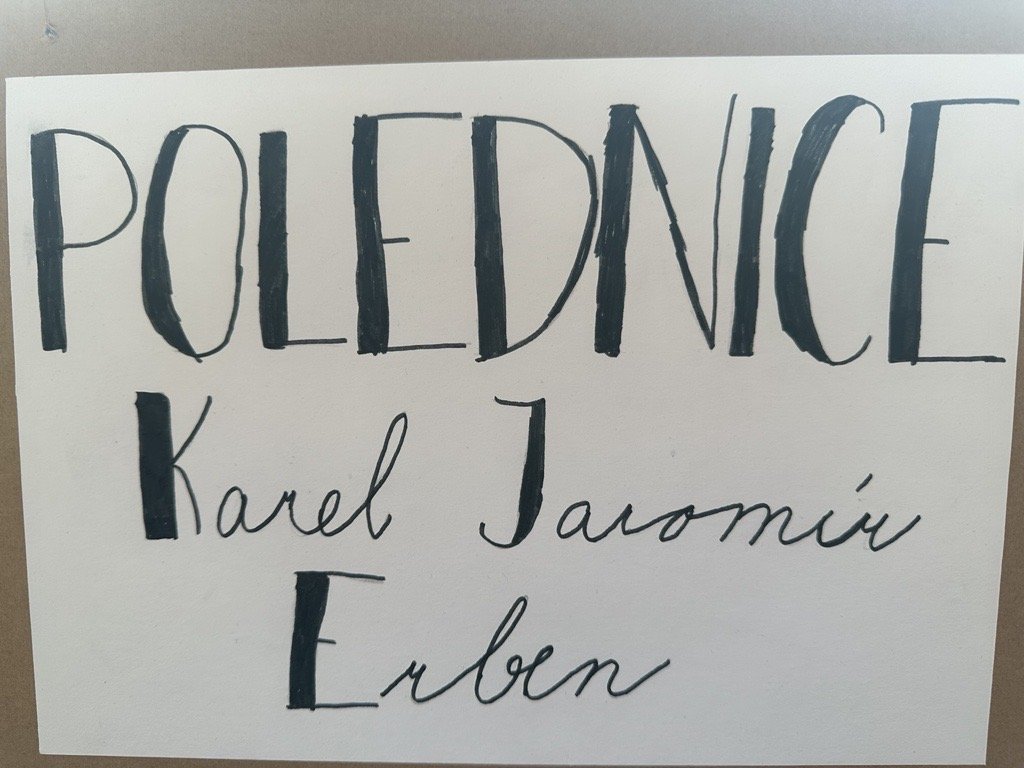 POLEDNICE
Karel Jaromír
Erben